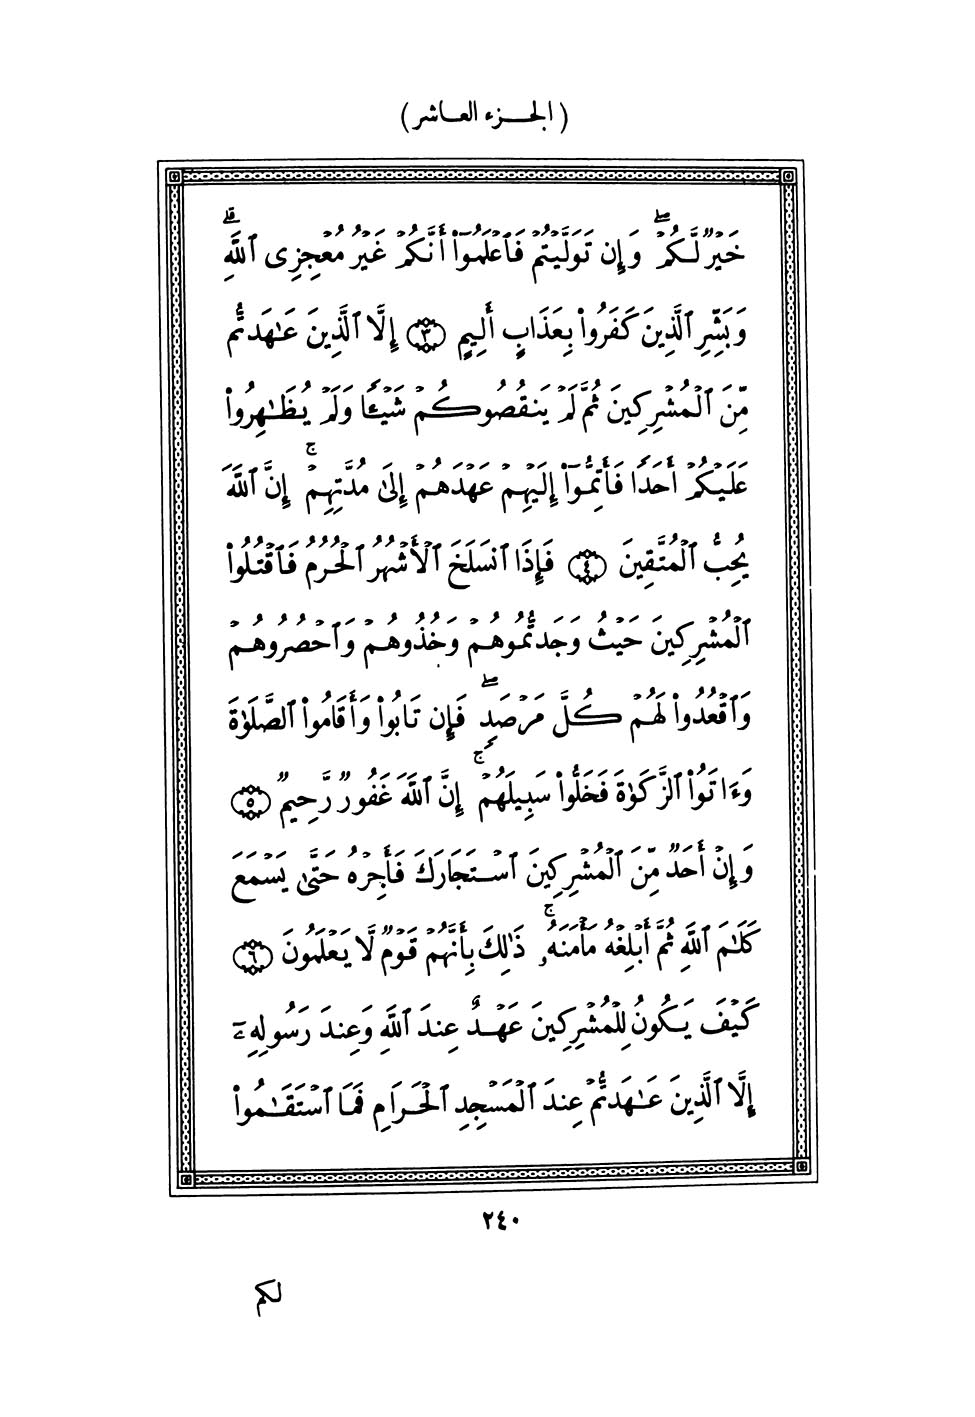 (الجـزء العـاشر)
خَيْرٌ لَّكُمْ ۖ وَإِن تَوَلَّيْتُمْ فَٱعْلَمُوٓا۟ أَنَّكُمْ غَيْرُ مُعْجِزِى ٱللَّهِ ۗ
وَبَشِّرِ ٱلَّذِينَ كَفَرُوا۟ بِعَذَابٍ أَلِيمٍ ﴿٣﴾ إِلَّا ٱلَّذِينَ عَـٰهَدتُّم
مِّنَ ٱلْمُشْرِكِينَ ثُمَّ لَمْ يَنقُصُوكُمْ شَيْـًٔا وَلَمْ يُظَـٰهِرُوا۟
عَلَيْكُمْ أَحَدًا فَأَتِمُّوٓا۟ إِلَيْهِمْ عَهْدَهُمْ إِلَىٰ مُدَّتِهِمْ ۚ إِنَّ ٱللَّهَ
يُحِبُّ ٱلْمُتَّقِينَ ﴿٤﴾ فَإِذَا ٱنسَلَخَ ٱلْأَشْهُرُ ٱلْحُرُمُ فَٱقْتُلُوا۟
ٱلْمُشْرِكِينَ حَيْثُ وَجَدتُّمُوهُمْ وَخُذُوهُمْ وَٱحْصُرُوهُمْ
وَٱقْعُدُوا۟ لَهُمْ كُلَّ مَرْصَدٍ ۖ فَإِن تَابُوا۟ وَأَقَامُوا۟ ٱلصَّلَوٰةَ
وَءَاتَوُا۟ ٱلزَّكَوٰةَ فَخَلُّوا۟ سَبِيلَهُمْ ۚ إِنَّ ٱللَّهَ غَفُورٌ رَّحِيمٌ ﴿٥﴾
وَإِنْ أَحَدٌ مِّنَ ٱلْمُشْرِكِينَ ٱسْتَجَارَكَ فَأَجِرْهُ حَتَّىٰ يَسْمَعَ
كَلَـٰمَ ٱللَّهِ ثُمَّ أَبْلِغْهُ مَأْمَنَهُۥ ۚ ذَٰلِكَ بِأَنَّهُمْ قَوْمٌ لَّا يَعْلَمُونَ ﴿٦﴾
كَيْفَ يَكُونُ لِلْمُشْرِكِينَ عَهْدٌ عِندَ ٱللَّهِ وَعِندَ رَسُولِهِۦٓ
إِلَّا ٱلَّذِينَ عَـٰهَدتُّمْ عِندَ ٱلْمَسْجِدِ ٱلْحَرَامِ فَمَا ٱسْتَقَـٰمُوا۟
٢٤٠
لكم